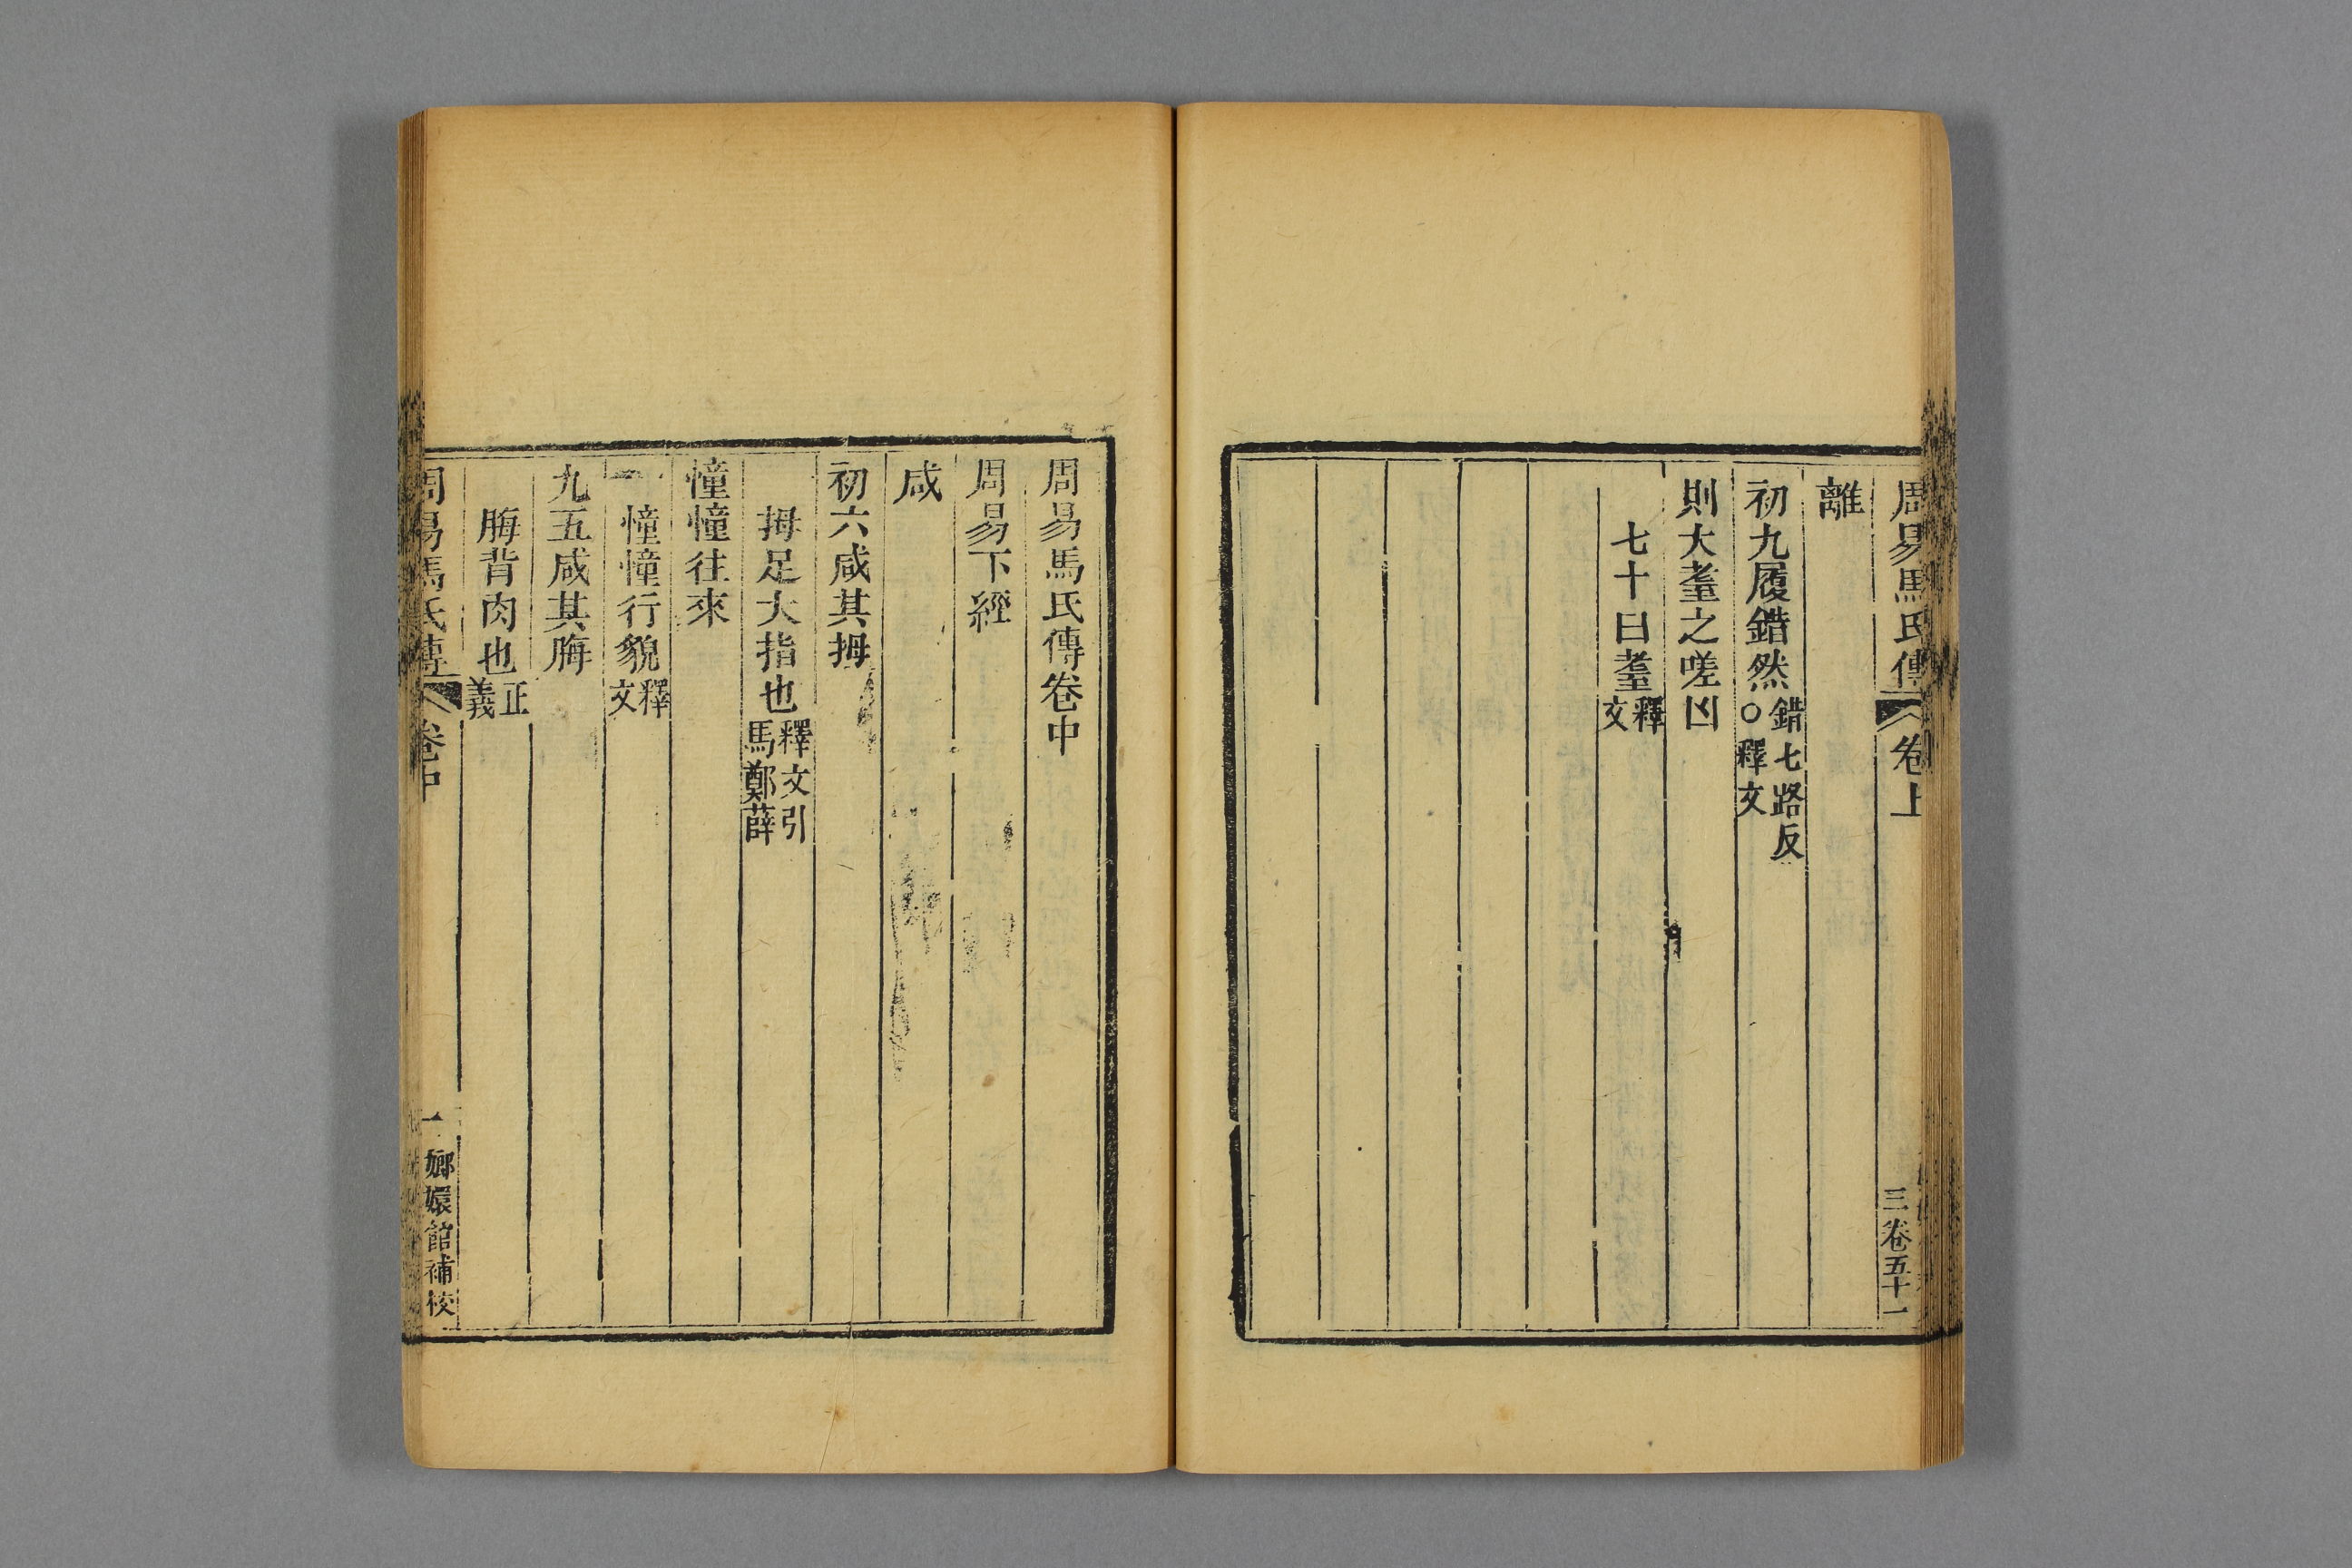 周易馬氏傳 卷上 三 卷五十一
離
初九履錯然 錯七路反○釋文
則大耋之嗟凶
七十曰耋 釋文
周易馬氏傳卷中
周易下經
咸
初六咸其拇
拇足大指也 釋文引馬鄭薛
憧憧往來
憧憧行貌 釋文
九五咸其脢
脢背肉也 正義
周易馬氏傳 卷中 一 嫏嬛館補校